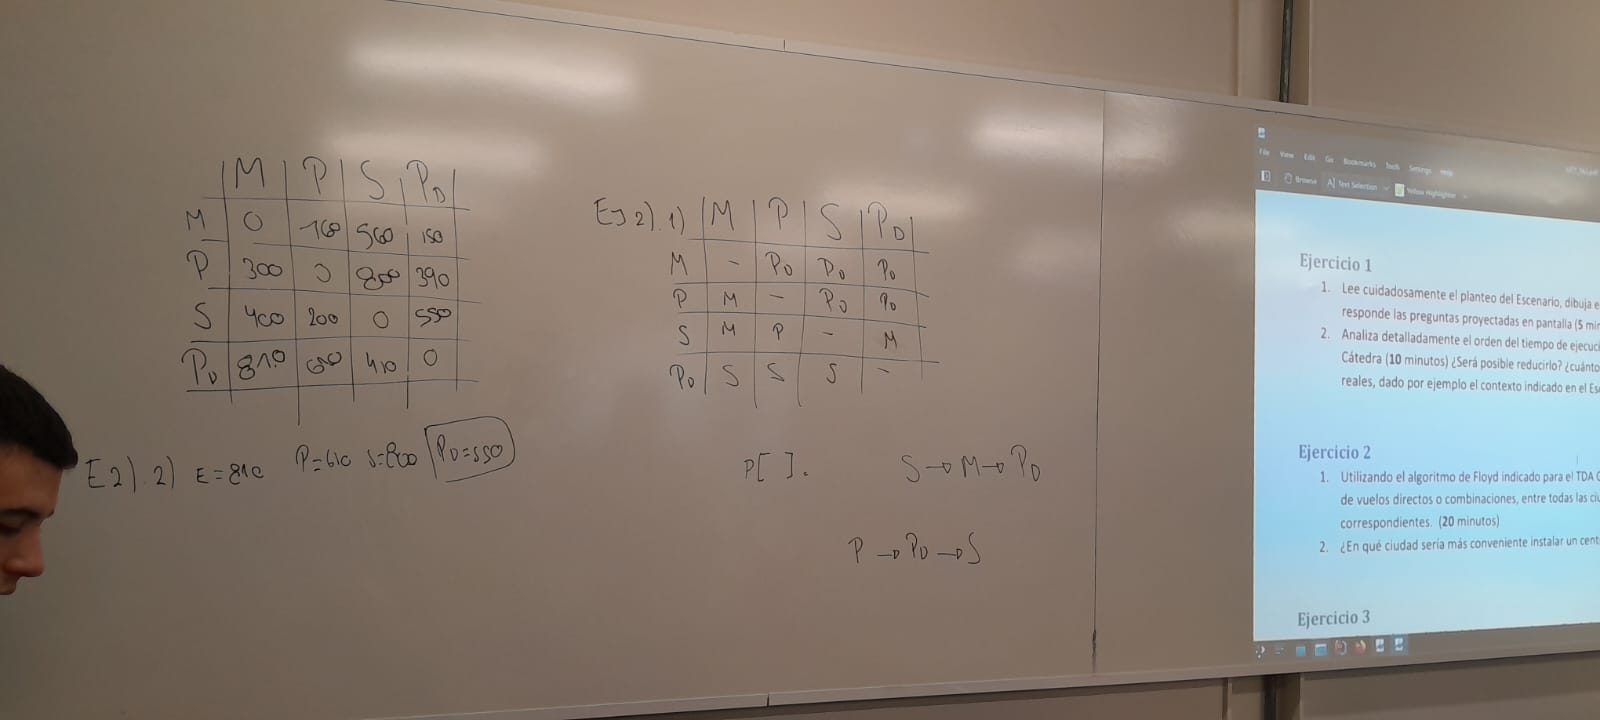 M | P | S | PD
M | 0 | 760 | 560 | 150
P | 300 | 0 | 800 | 390
S | 400 | 200 | 0 | 550
PD | 810 | 600 | 410 | 0
E2). 2) E=810 P=610 S=800 PD=550
Ej 2). 1) | M | P | S | PD
M | - | PD | PD | PD
P | M | - | PD | PD
S | M | P | - | M
PD | S | S | S | -
P[ ]. S → M → PD
P → PD → S
File View Edit Go Bookmarks Tools Settings Help
Browse Text Selection Yellow Highlighter
Ejercicio 1
1. Lee cuidadosamente el planteo del Escenario, dibuja e
responde las preguntas proyectadas en pantalla (5 min
2. Analiza detalladamente el orden del tiempo de ejecuci
Cátedra (10 minutos) ¿Será posible reducirlo? ¿cuánto
reales, dado por ejemplo el contexto indicado en el Es
Ejercicio 2
1. Utilizando el algoritmo de Floyd indicado para el TDA
de vuelos directos o combinaciones, entre todas las ciu
correspondientes. (20 minutos)
2. ¿En qué ciudad sería más conveniente instalar un cent
Ejercicio 3